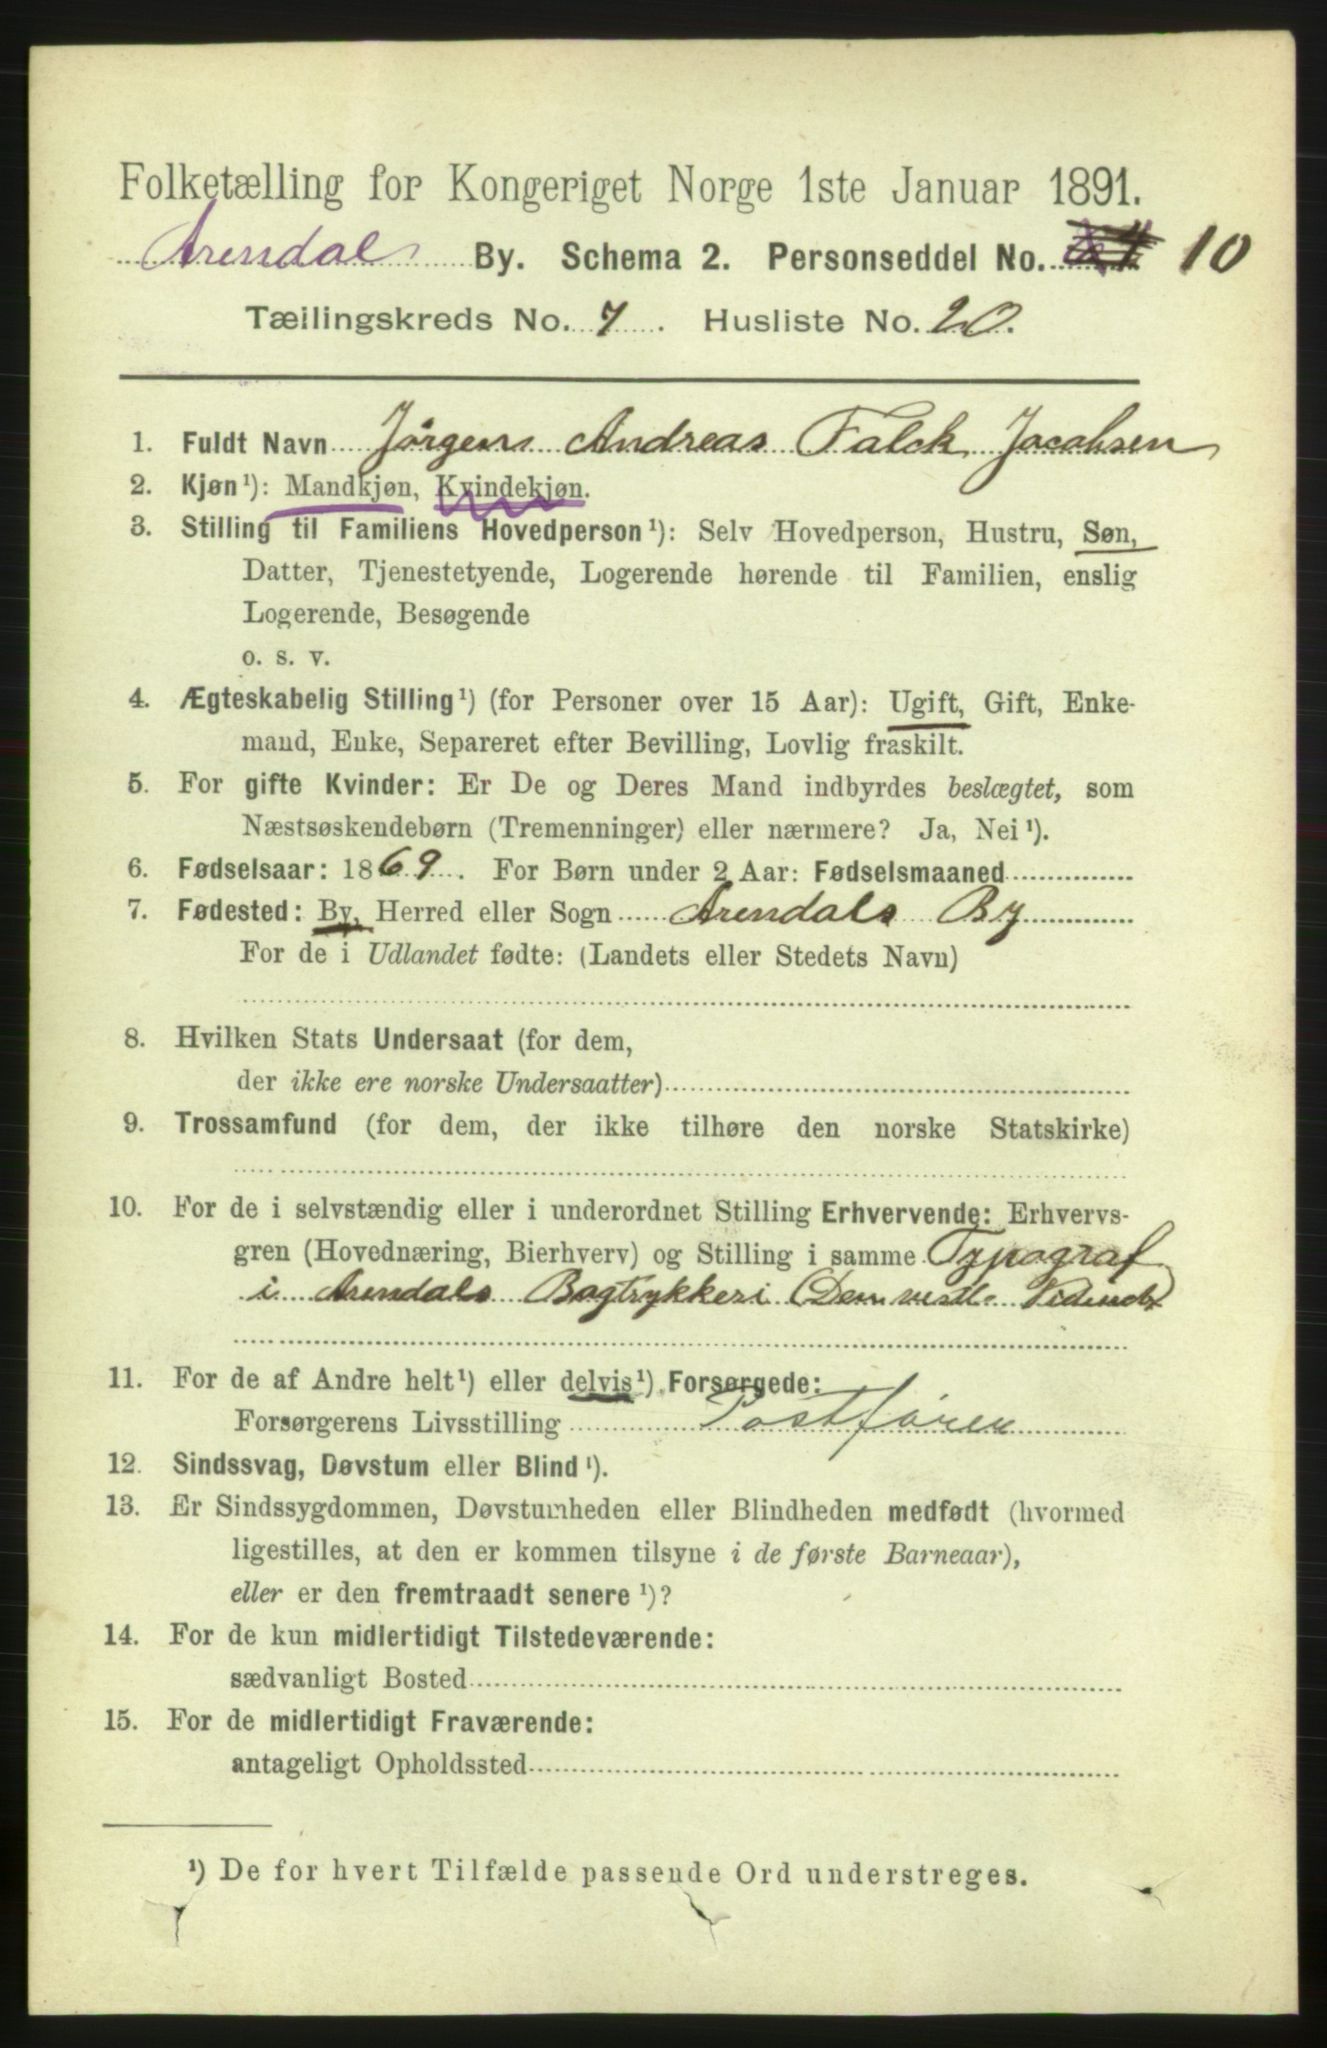 Folketælling for Kongeriget Norge 1ste Januar 1891.
Arendal By. Schema 2. Personseddel No. 10
Tællingskreds No. 7. Husliste No. 20.
1. Fuldt Navn Jørgen Andreas Falck Jacobsen
2. Kjøn¹): Mandkjøn, Kvindekjøn.
3. Stilling til Familiens Hovedperson¹): Selv Hovedperson, Hustru, Søn,
Datter, Tjenestetyende, Logerende hørende til Familien, enslig
Logerende, Besøgende
o. s. v.
4. Ægteskabelig Stilling¹) (for Personer over 15 Aar): Ugift, Gift, Enke-
mand, Enke, Separeret efter Bevilling, Lovlig fraskilt.
5. For gifte Kvinder: Er De og Deres Mand indbyrdes beslægtet, som
Næstsøskendebørn (Tremenninger) eller nærmere? Ja, Nei¹).
6. Fødselsaar: 1869. For Børn under 2 Aar: Fødselsmaaned
7. Fødested: By, Herred eller Sogn Arendals By
For de i Udlandet fødte: (Landets eller Stedets Navn)
8. Hvilken Stats Undersaat (for dem,
der ikke ere norske Undersaatter)
9. Trossamfund (for dem, der ikke tilhøre den norske Statskirke)
10. For de i selvstændig eller i underordnet Stilling Erhvervende: Erhvervs-
gren (Hovednæring, Bierhverv) og Stilling i samme Typograf
i Arendals Bogtrykkeri (Den vestl.
11. For de af Andre helt¹) eller delvis¹) Forsørgede:
Forsørgerens Livsstilling Postfører
12. Sindssvag, Døvstum eller Blind¹).
13. Er Sindssygdommen, Døvstumheden eller Blindheden medfødt (hvormed
ligestilles, at den er kommen tilsyne i de første Barneaar),
eller er den fremtraadt senere¹)?
14. For de kun midlertidigt Tilstedeværende:
sædvanligt Bosted
15. For de midlertidigt Fraværende:
antageligt Opholdssted
¹) De for hvert Tilfælde passende Ord understreges.